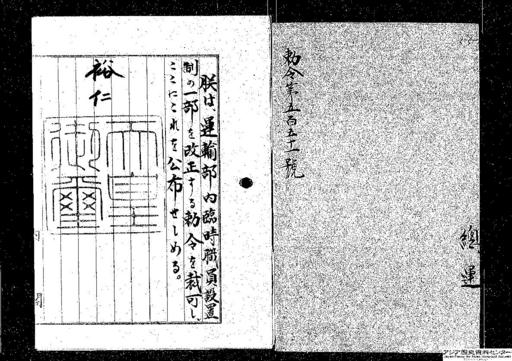 勅令第五百五十一號
總
運
朕は、運輸部内臨時職員設置
制の一部を改正する勅令を裁可し、
ここにこれを公布せしめる。
裕仁
天皇
御璽
アジア歴史資料センター